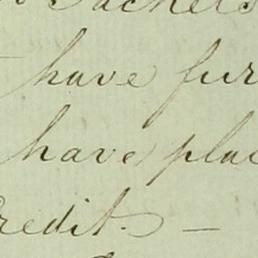 Sachels
have fur
have plac
redit. —